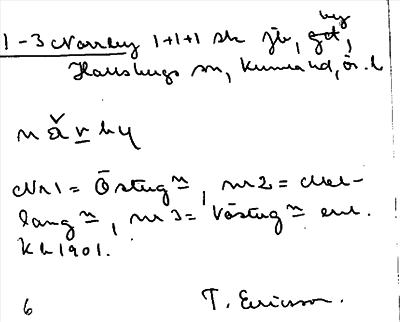 by
1-3 Norrby 1+1+1 sk jb, get,
Hallsbergs sn, Kumla hd, ör. l
n å̆ r b y
Nr 1 = Östug n, nr 2 = Mel-
lang n, nr 3 = Västug n enl.
Kh 1901.
6 T. Ericsson.